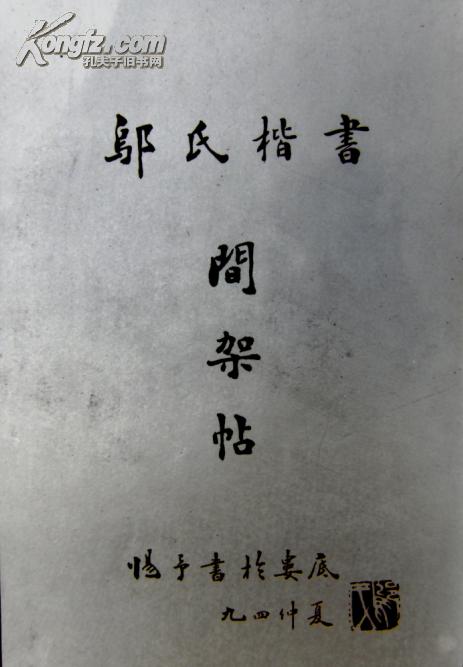 Kongfz.com
孔夫子旧书网
鄔氏楷書
間
架
帖
惕予書於婁底
九四仲夏